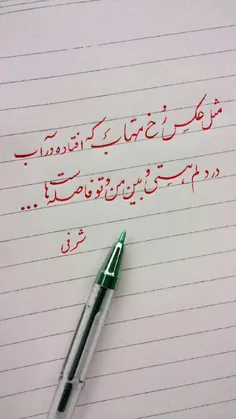 مثل عکسِ رُخِ مهتاب که افتاده در آب
در دلم هستی و بین من و تو فاصله‌هاست ...
شرفی